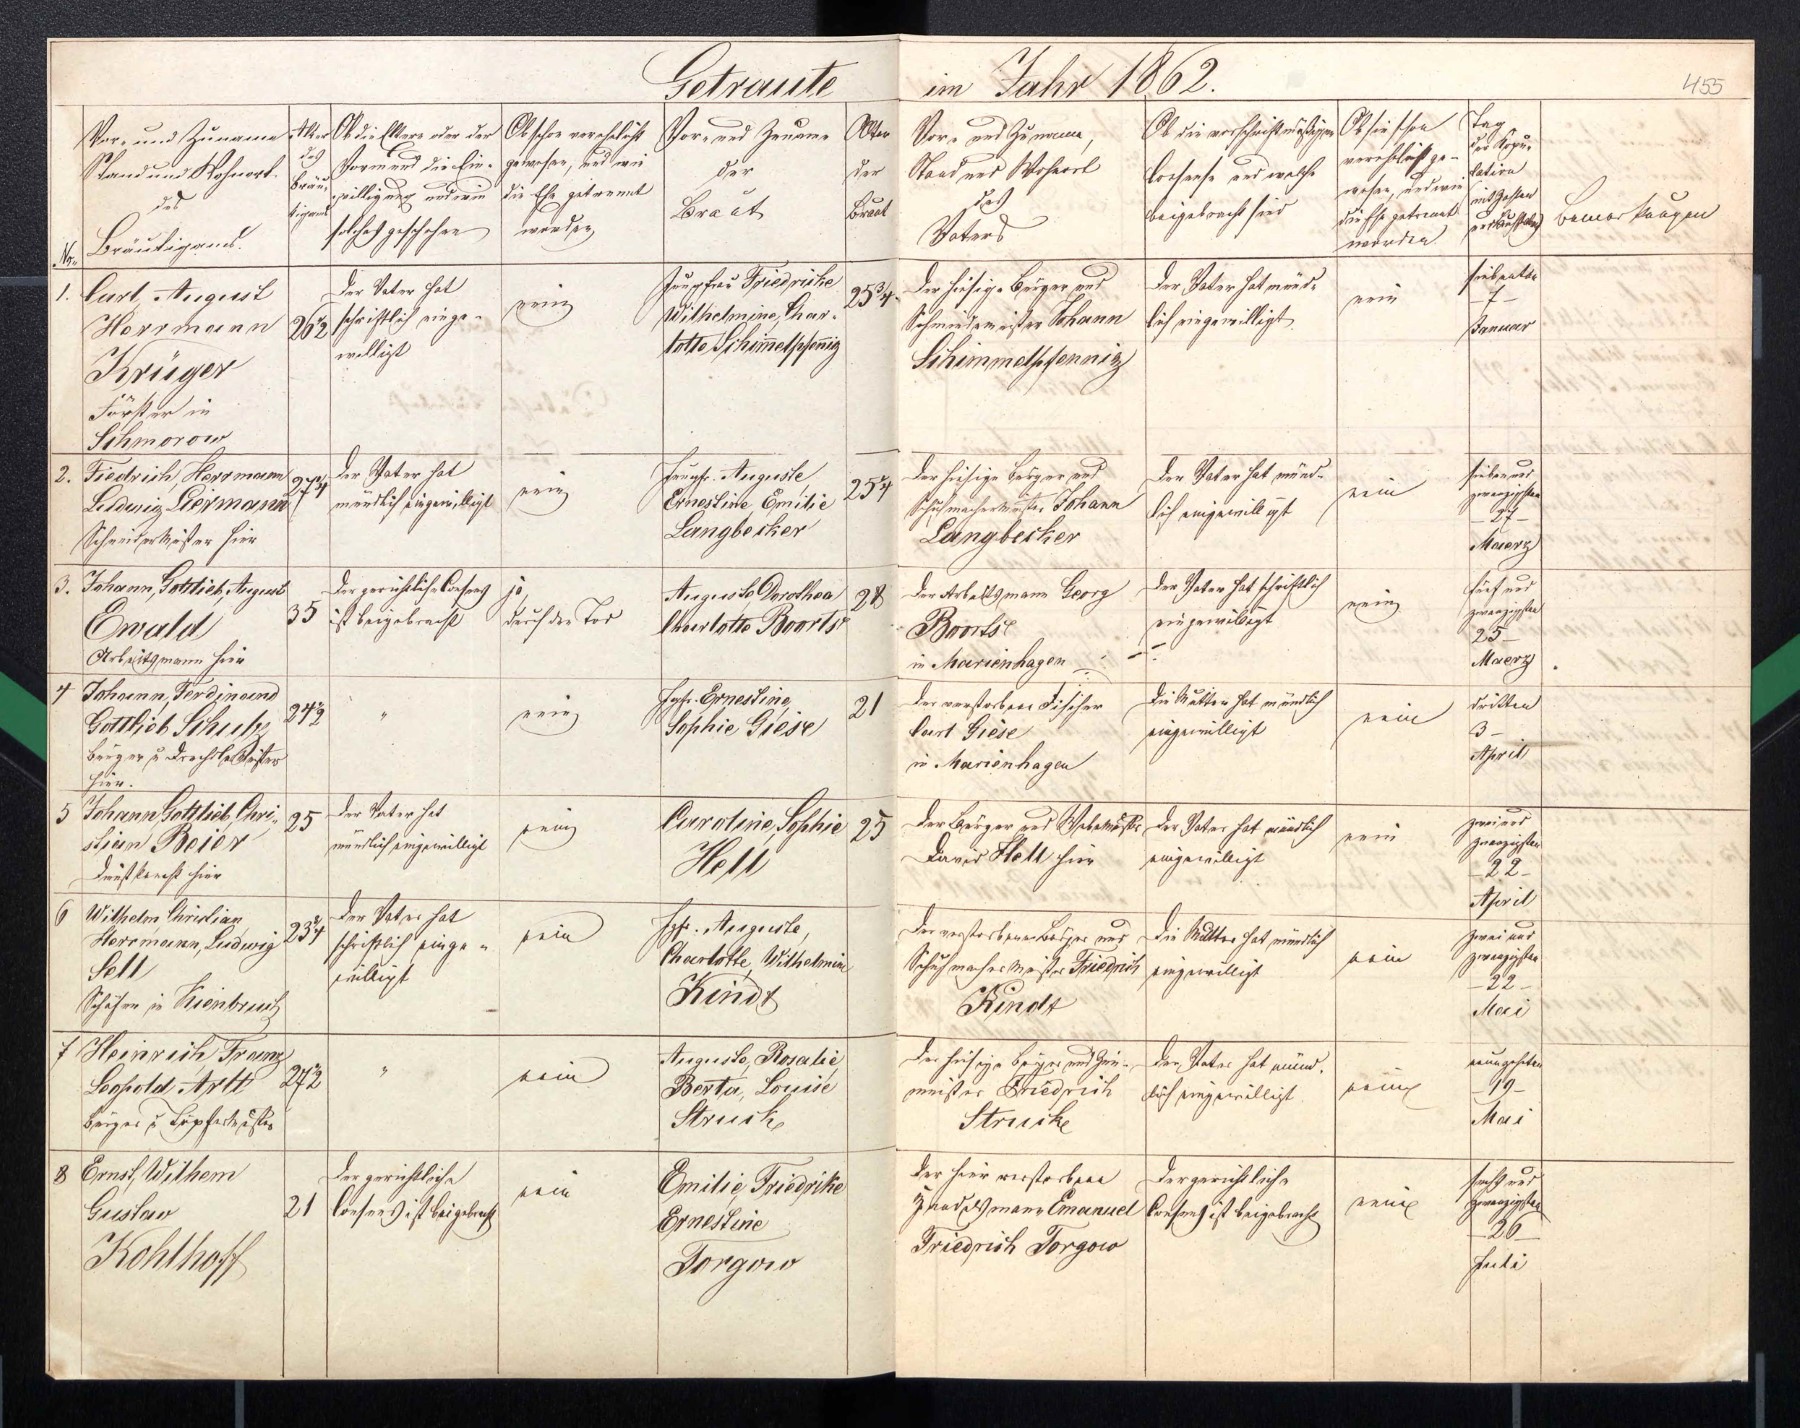 Getraute im Jahr 1862.
455
Nr.
Vor- und Zuname
Stand und Wohnort
des
Bräutigams.
Alter
des
Bräu-
tigams
Ob die Eltern oder der
Vormund die Ein-
willigung und wie
solches geschehen
Ob schon verehelicht
gewesen, und wie
die Ehe getrennt
worden
Vor- und Zuname
der
Braut
Alter
der
Braut
Vor- und Zuname,
Stand und Wohnort
des
Vaters
Ob die vorschriftmäßigen
Consense und welche
beigebracht sind
Ob sie schon
verehelicht ge-
wesen, und wie
die Ehe getrennt
worden
Tag
der Kopu-
lation
mit Zahlen
und Buchstaben
Bemerkungen
1.
Carl, August
Herrmann
Krüger
Förster in
Schmorow
26½
Der Vater hat
schriftlich einge-
willigt
nein
Jungfrau Friedricke
Wilhelmine, Char-
lotte Schim̄elpfen̄ig
25¾
Der hiesige Bürger und
Schmiedemeister Johann
Schimmelpfennig
Der Vater hat münd-
lich eingewilligt
nein
siebenten
-7-
Januar
2.
Fiedrich, Herrmann
Ludewig Liermann
Schneidermeister hier
27¾
Der Vater hat
mündlich eingewilligt
nein
Jungfr. Auguste
Ernestine, Emilie
Langbecker
25¾
Der hiesige Bürger und
Schuhmachermeister Johann
Langbecker
Der Vater hat münd-
lich eingewilligt
nein
sieben und
zwanzigsten
-27-
Maerz
3.
Johann, Gottlieb, August
Ewald
Arbeitsmann hier
35
Der gerichtliche Consens
ist beigebracht
ja,
durch den Tod
Auguste Dorothea
Charlotte Boorts
28
Der Arbeitsmann Georg
Boorts
in Marienhagen
Der Vater hat schriftlich
eingewilligt
nein
fünf und
zwanzigsten
25-
Maerz
4
Johann, Ferdinand
Gottlieb Schulz
Bürger u Drechslermeister
hier.
24½
"
nein
Jgfr. Ernestine,
Sophie Giese
21
Der verstorbene Fischer
Carl Giese
in Marienhagen
Die Mutter hat mündlich
eingewilligt
nein
dritten
3-
April
5
Johann Gottlieb, Chri-
stian Beier
Dienstknecht hier
25
Der Vater hat
mündlich eingewilligt
nein
Caroline, Sophie
Hell
25
Der Bürger und Webermeister
David Hell hier
Der Vater hat mündlich
eingewilligt
nein
zwei und
zwanzigsten
-22-
April
6
Wilhelm Christian
Herrmann, Ludewig
Sell
Schäfer in Kienbruch
23¾
Der Vater hat
schriftlich einge-
willigt
nein
Jgfr. Auguste,
Charlotte, Wilhelmine
Kindt
Der verstorbene Bürger und
Schuhmachermeister Friedrich
Kindt
Die Mutter hat mündlich
eingewilligt
nein
zwei und
zwanzigsten
-22-
Mai
7
Heinrich, Franz
Leopold Arlt
Bürger u Töpfermeister
27½
"
nein
Auguste, Rosalie,
Berta, Louise
Struck
Der hiesige Bürger und
meister Friedrich
Strucke
Der Vater hat münd-
lich eingewilligt
nein
neunzehnten
-19-
Mai
8
Ernst, Wilhem
Gustav
Kohlhoff
21
Der gerichtliche
Consens ist beigebracht
nein
Emilie, Friedrike
Ernestine
Torgow
Der hier verstorbene
Handelsmann Emanuel
Friedrich Torgow
Der gerichtliche
Consens ist beigebracht
nein
sechs und
zwanzigsten
-26-